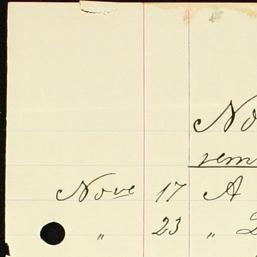 No
rem
Nove 17 A
" 23 "